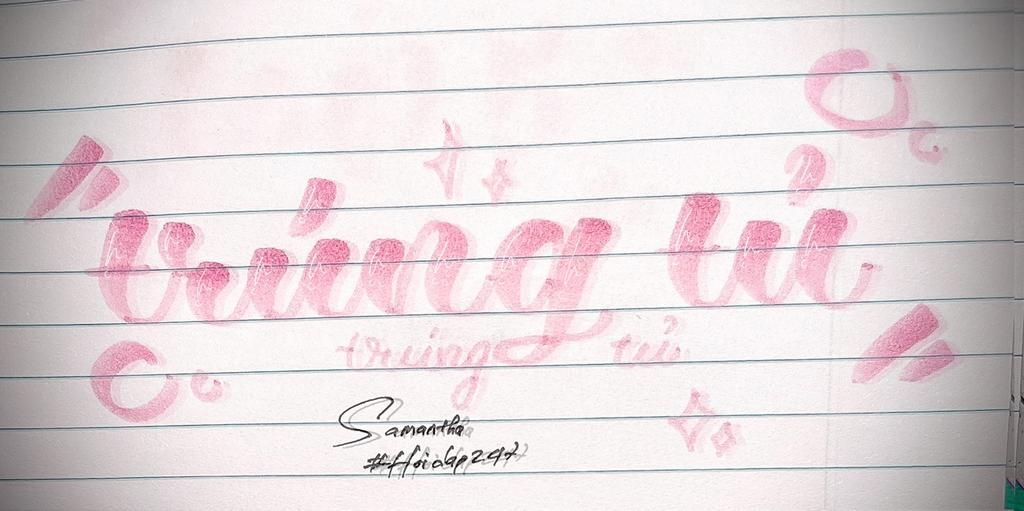 trúng tủ
trúng tủ
Samantha
#Hoidap247